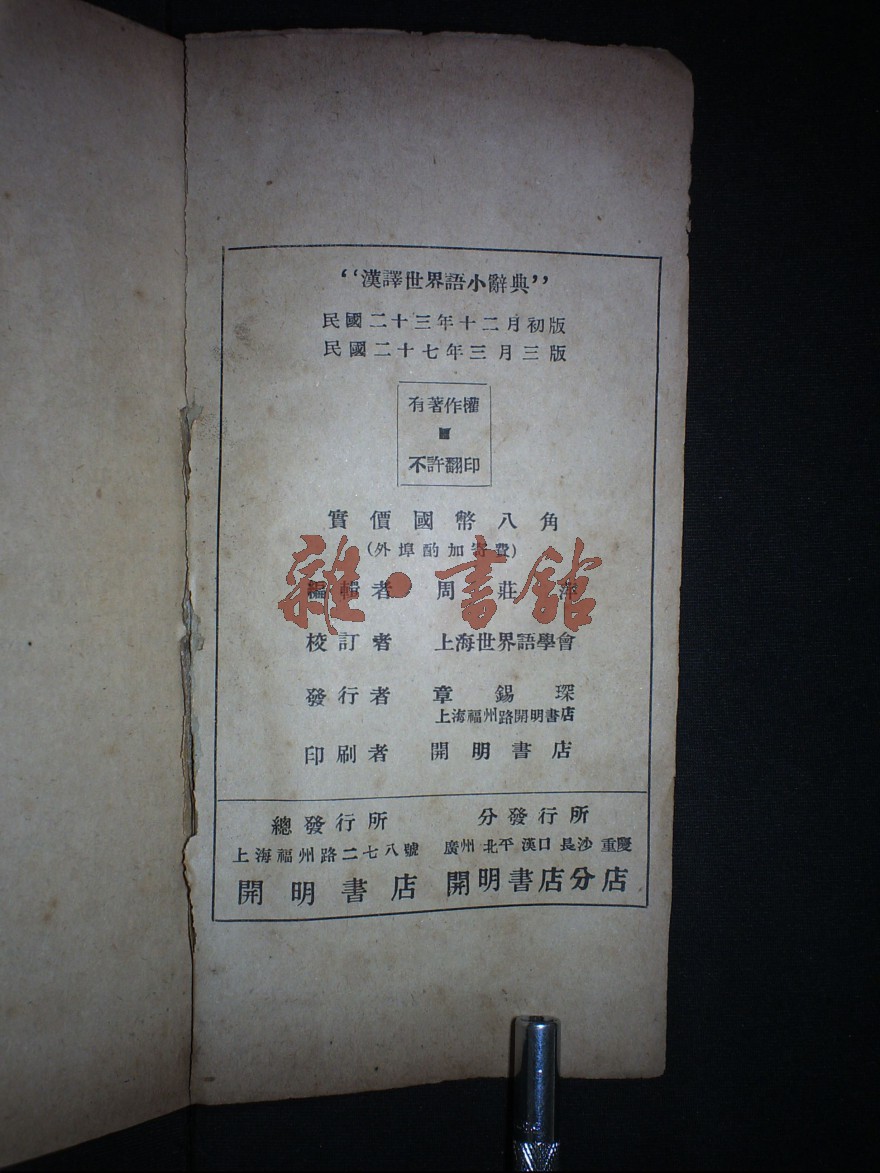 “漢譯世界語小辭典”
民國二十三年十二月初版
民國二十七年三月三版
有著作權
不許翻印
實價國幣八角
(外埠酌加寄費)
編輯者 周莊萍
校訂者 上海世界語學會
發行者 章錫琛
上海福州路開明書店
印刷者 開明書店
總發行所
上海福州路二七八號
開明書店
分發行所
廣州 北平 漢口 長沙 重慶
開明書店分店
雜·書館